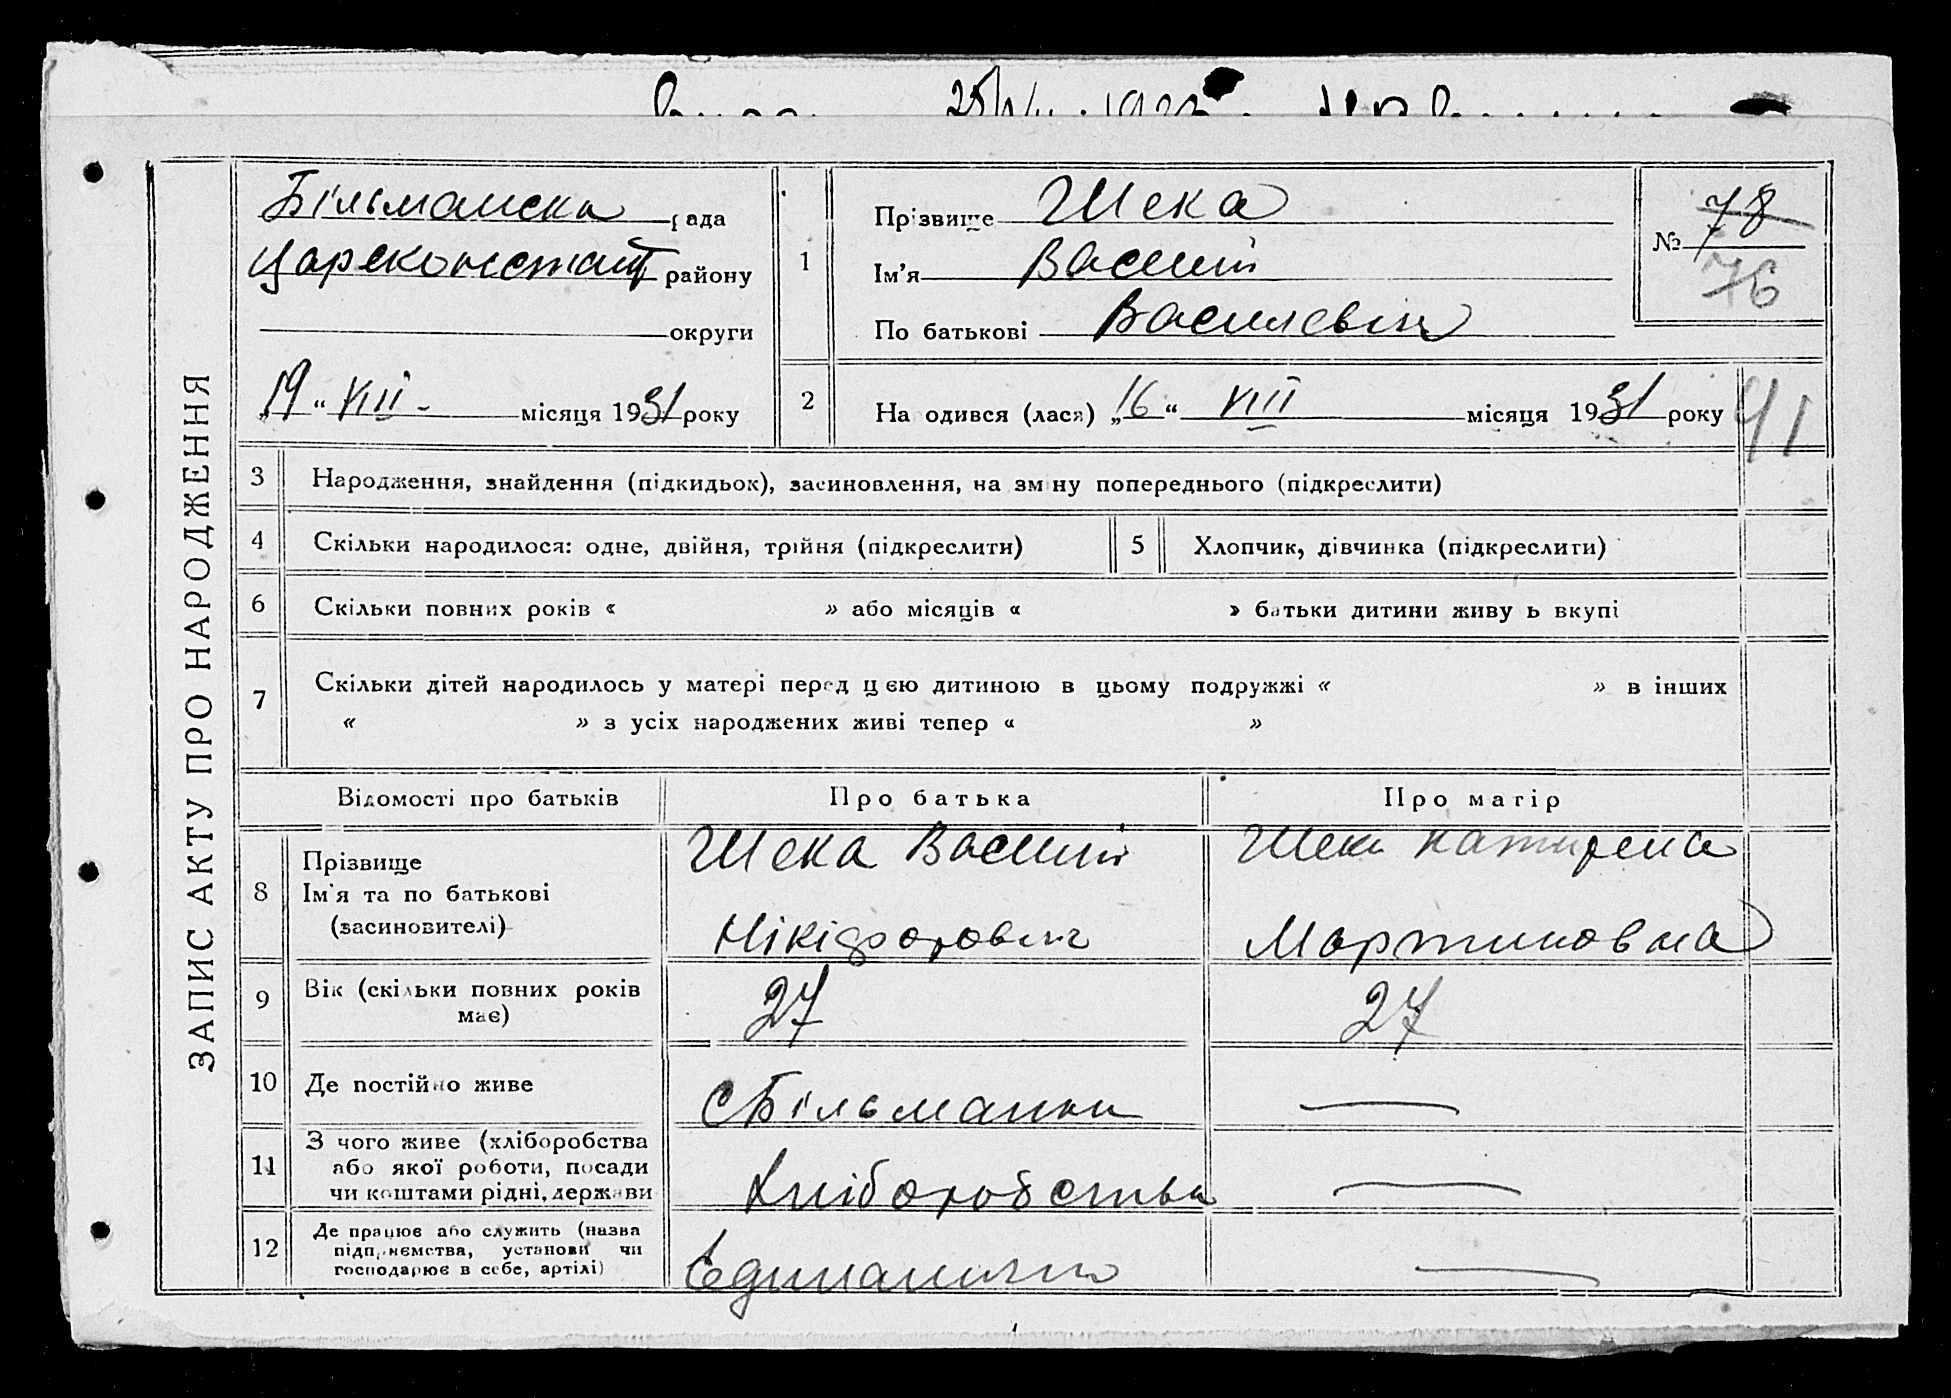 ЗАПИС АКТУ ПРО НАРОДЖЕННЯ
Більманска рада
Царськонстант району
округи
„19“ VIII - місяця 1931 року
1
Прізвище Шека
Ім'я Василій
По батькові Василевіч
№ 78
76
2
На одився (лася) „16“ VIII місяця 1931 року
41
3 Народження, знайдення (підкидьок), засиновлення, на зміну попереднього (підкреслити)
4 Скільки народилося: одне, двійня, трійня (підкреслити)
5 Хлопчик, дівчинка (підкреслити)
6 Скільки повних років « » або місяців « » батьки дитини живу ь вкупі
7 Скільки дітей народилось у матері перед цею дитиною в цьому подружжі « » в інших
« » з усіх народжених живі тепер « »
Відомості про батьків Про батька Про матір
8 Прізвище
Ім'я та по батькові
(засиновителі)
Шека Василій
Нікіфорович
Шека Катирена
Мартиновна
9 Вік (скільки повних років
має)
27 27
10 Де постійно живе с Більманка —
11 З чого живе (хліборобства
або якої роботи, посади
чи коштами рідні, держави
Хліборобства —
12 Де працює або служить (назва
підприємства, установи чи
господарює в себе, артілі)
—